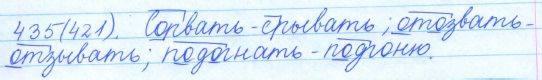 435(421). Сорвать - срывать; отозвать -
отзывать; подогнать - подгоню.